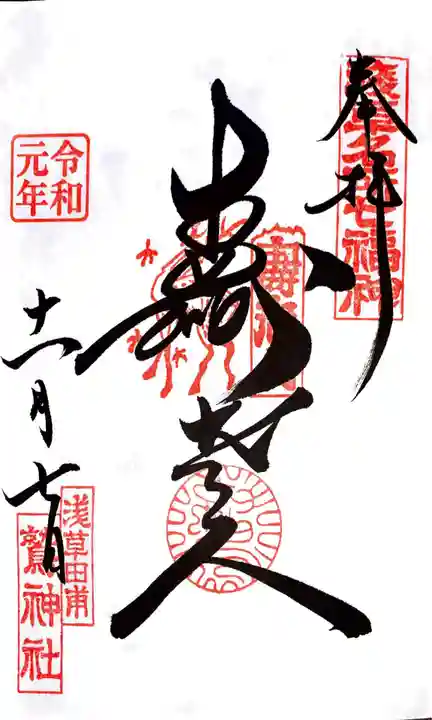 奉拝
浅草名所七福神
壽老人
令和
元年
十一月七日
浅草田甫
鷲神社